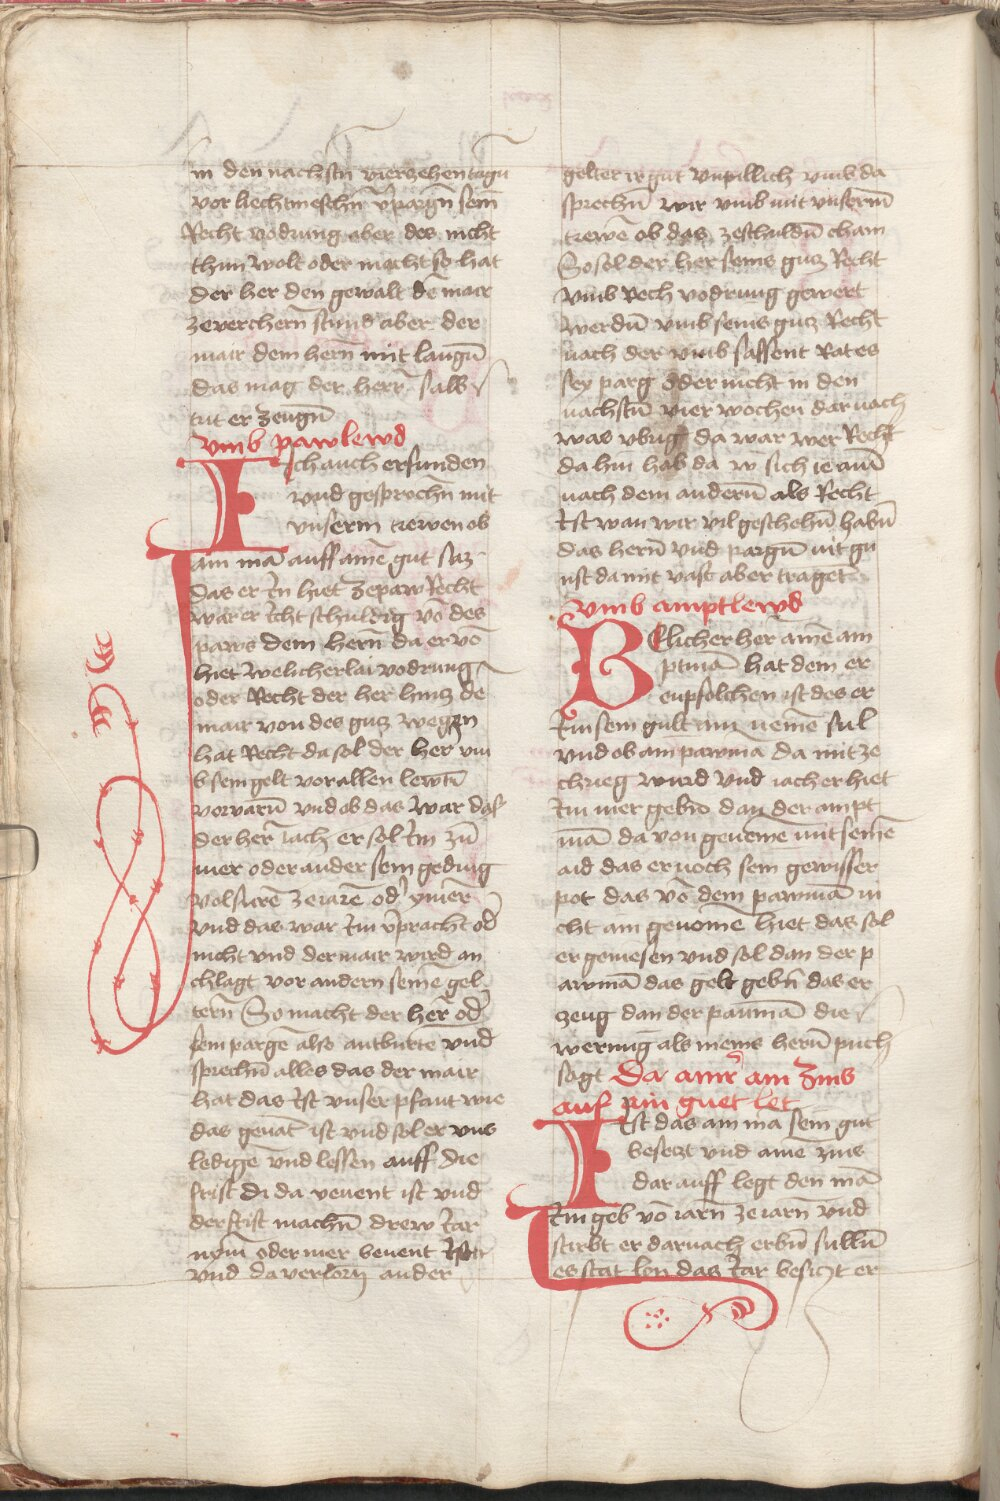 in den nachstn̄ vierzehen tagn̄
vor liechtmeschn̄ v̄pargn̄ sein
Recht vodrung aber des nicht
thun wolt oder macht so hat
der her den gewalt de mair
zeverchern stund aber der
mair dem hern̄ mit laugn̄
das mag der herr selb
mit er zeugn̄
vmb pawlewd
Ich auch erfunden
vnd gesprochn̄ mit
vnserm trewen ob
ain mā auff aine gut saz
das er in hiet zepaw Recht
war er icht schuldig vō des
paws dem hern̄ da er vō
hiet welicherlai vodrung
oder Recht der her hintz de
mair von des gutz wegen
hat Recht da sol der her vm
b sein gelt vor allen lewtn̄
vorvarn̄ vnd ob das war das
der her iach er sol im zn̄
mer oder ander sein geding
volfurē ze iarē od' ymer
vnd das war im v̄pracht od'
nicht vnd der mair wird an
chlagt vor andern seinē gel
tern̄ So macht der her od'
sein pargē also antburte vnd
sprechn̄ alles das der mair
hat das ist vnser pfant wie
das genāt ist vnd sol er vns
ledigē vnd lessen auff die
frist di da benent ist vnd
der frist machn̄ drew iar
nym̄ oder mer benent ist
vnd da verlorn ander
gelter ir gut vnpillich vmb da
sprechn̄ wir vmb mit vnserm̄
trewē ob das zeschuldn̄ cham
So sol der her seins gutz Recht
vmb Rech vodrung gewert
werdn̄ vmb seins gutz Recht
nach der vmb sassent Rates
sey parg oder nicht in den
nachstn̄ vier wochen dar nach
was vbrig da war wer Recht
da hin hab da w sich ie ain̄
nach dem andern̄ als Recht
ist wan wir vil geschehn̄ habn̄
das hern̄ vnd pargn̄ nit gu
nst da mit vast aber traget
vmb amptlewd
Belicher her ainē am
ptmā hat dem er
enpfolchen ist des er
im sein gult ain nemē sul
vnd ob ain pawmā da mit ze
chrieg wurd vnd iach er hiet
im mer gebn̄ dan der ampt
mā da von genomē mit seinē
aid das er noch sein gewisser
pot das vō dem pawmā ni
cht ain genomē hiet das sol
er geniesen vnd sol dan der p
awmā das gelt gebn̄ das er
zeug dan der paumā die
werung als meins hern̄ puch
sagt Der ainr ain zins
auf sein guet let
Ist das ain mā sein gut
besetzt vnd aine zins
dar auff legt den mā
im geb vō iarn̄ ze iarn̄ vnd
stirbt er darnach erbn̄ sulln̄
es stat len das iar besitzt er